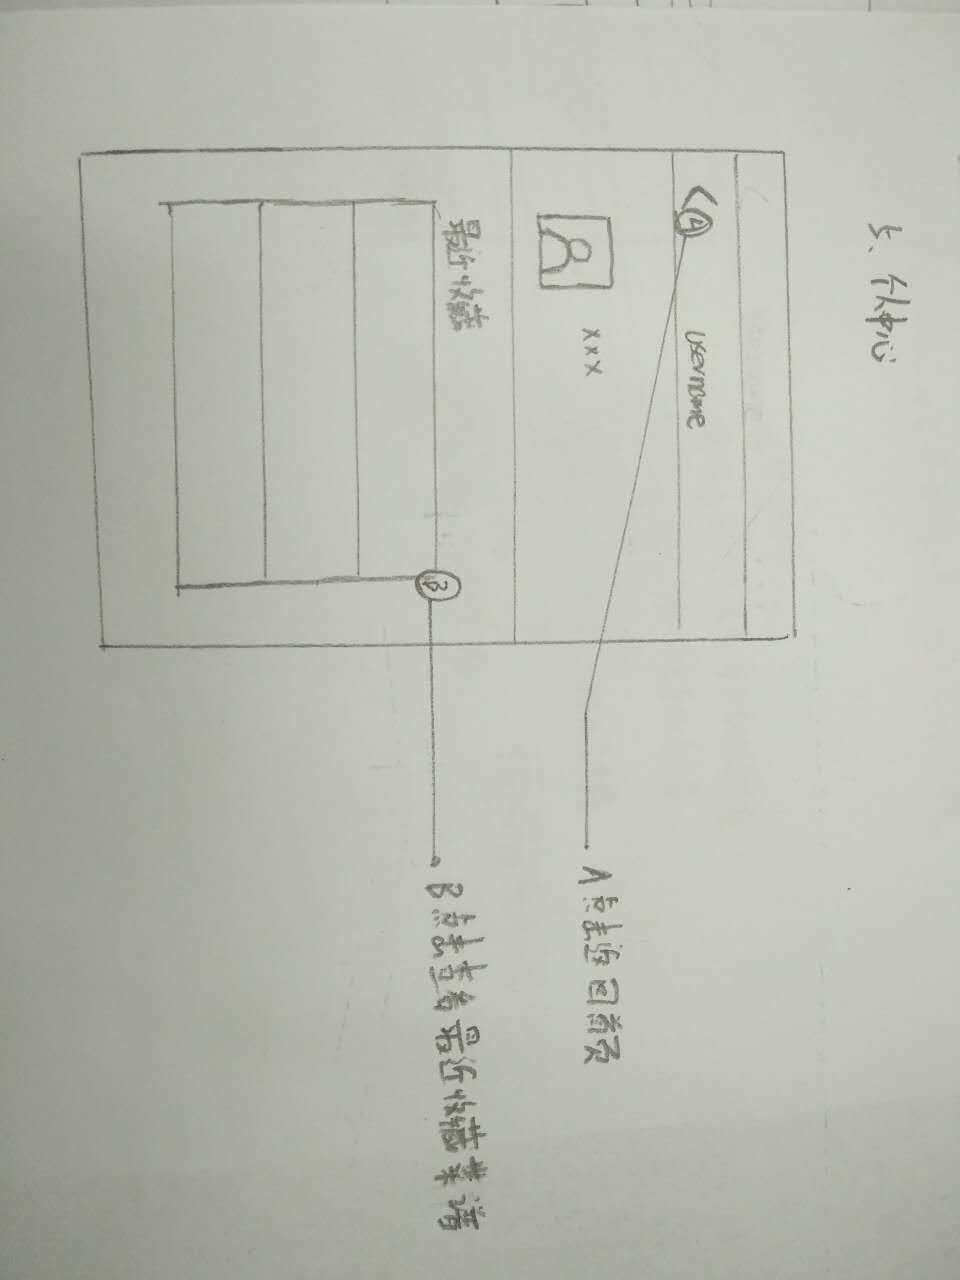 七、个人中心
A
username
xxx
最近收藏
B
A 点击返回首页
B 点击查看最近收藏菜谱